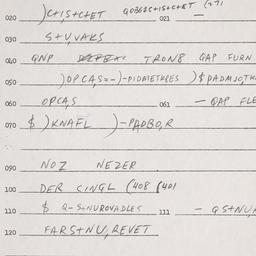 020 )C+1,S+C+ET 021 —
030 S+U,VAKS
040 QNP TRON8 QAP FURN
050 )OPCA,S=-)-PIDMETKEES )$PADMJOTK
060 OPCA,S 061 — QAP FLE
070 $ )KNAFL )-PADBO,R
090 NOZ NEZER
100 DER CINGL (408 (401
110 $ Q-S=NUROVADLES 111 — QS+NU,
120 FARS+NU,REVET